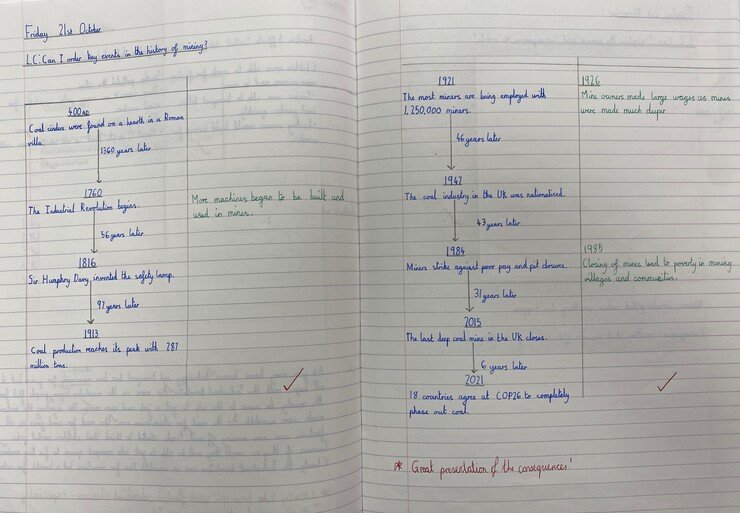 Friday 21st October
L.C: Can I order key events in the history of mining?
400AD
Coal cinders were found on a hearth in a Roman
villa.
1360 years later
1760
The Industrial Revolution begins.
More machines began to be built and
used in mines.
56 years later
1816
Sir Humphry Davy invented the safety lamp.
97 years later
1913
Coal production reaches its peak with 287
million tons.
1921
The most miners are being employed with
1,250,000 miners.
1926
Mine owners made large wages as mines
were made much deeper.
46 years later
1947
The coal industry in the UK was nationalised.
43 years later
1984
Miners strike against poor pay and pit closures.
1985
Closing of mines lead to poverty in mining
villages and communities.
31 years later
2015
The last deep coal mine in the UK closes.
6 years later
2021
18 countries agree at COP26 to completely
phase out coal.
* Great presentation of the consequences!